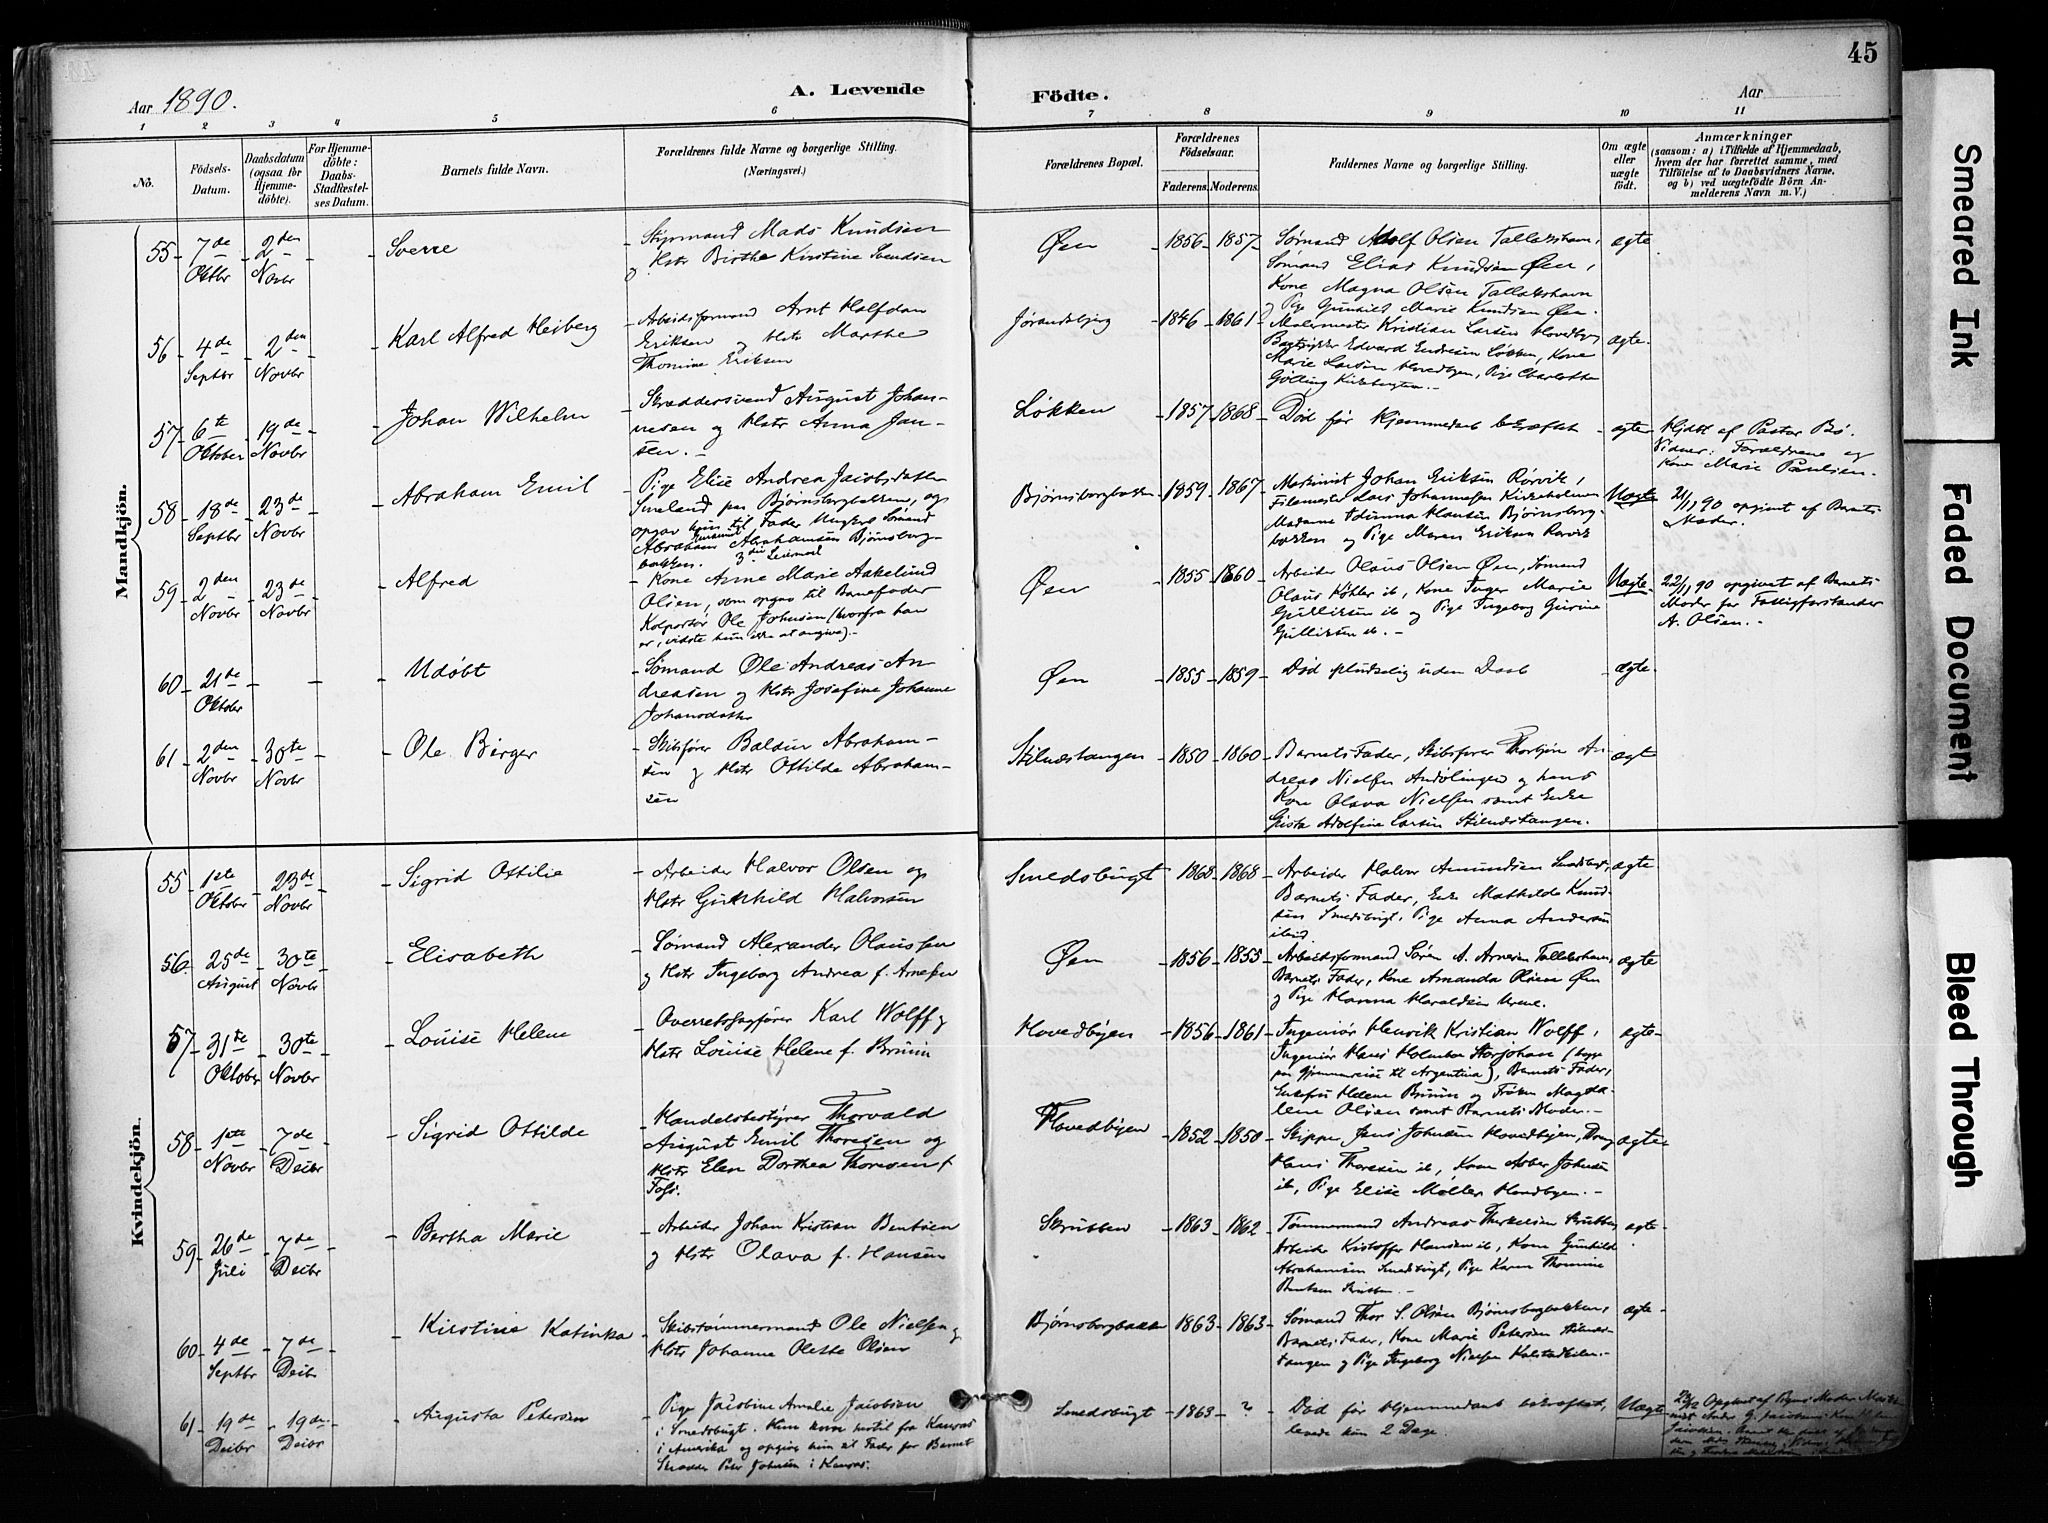 45
Aar 1890.
A. Levende
Födte.
Aar
1 2 3 4 5 6 7 8 9 10 11
No.
Födsels-
Datum.
Daabsdatum
(ogsaa for
Hjemme-
döbte).
For Hjemme-
döbte:
Daabs-
Stadfæstel-
ses Datum.
Barnets fulde Navn.
Forældrenes fulde Navne og borgerlige Stilling.
(Næringsvei.)
Forældrenes Bopæl.
Forældrenes
Födselsaar.
Faderens. Moderens.
Faddernes Navne og borgerlige Stilling.
Om ægte
eller
uægte
födt.
Anmærkninger
(saasom: a) i Tilfælde af Hjemmedaab,
hvem der har forrettet samme, med
Tilföielse af to Daabsvidners Navne,
og b) ved uægtefödte Börn An-
melderens Navn m. V.)
Mandkjön.
55 7de Oktbr 2den Novbr
Sverre
Styrmand Mads Knudsen
og Hstr Birthe Kirstine Svendsen
Øen 1856 1857
Sømand Adolf Olsen Tallakshavn,
Sømand Elias Knudsen Øen,
Kone Magna Olsen Tallakshavn
og Pige Gunhild Marie Knudsen Øen.
ægte
56 4de Septbr 2den Novbr
Karl Alfred Heiberg
Arbeidsformand Arnt Halfdan
Eriksen og Hstr Marthe
Thomine Eriksen
1846 1861
Malermester Kristian Larsen Hovedbyen
Edvard Endresen Løkken, Kone
Marie Larsen Hovedbyen, Pige Charlotte
ægte
57 6te Oktober 19de Novbr
Johan Wilhelm
Skræddersvend August Johan-
nesen og Hstr Anna Jan-
sen.
Løkken 1857 1868
Død før Hjemmedaab bekræftet
ægte
Hjdbt af Pastor Bø.
Vidner: Forældrene og
Kone Marie Paulsen.
58 18de Septbr 23de Novbr
Abraham Emil
Pige Elise Andrea Jacobsdatter
Smeland paa Bjørnsborgbakken, og
opgav hun til Fader Ungkarl Sømand
Abraham Abrahamsen Bjørnsborg-
bakken. 3die Leiermaal
Bjørnsborgbakken 1859 1867
Maskinist Johan Eriksen Rørvik,
Filemester Lars Johannesen Kirkeholmen
Madame Hansen Bjørnsborg-
bakken og Pige Maren Eriksen Rørvik
Uægte
21/1 90 opgivet af Barnets
Moder.
59 2den Novbr 23de Novbr
Alfred
Kone Anne Marie Aakelund
Olsen, som opgav til Barnefader
Kolportør Ole Johnsen (hvorfra han
er, vidste hun ikke at angive).
Øen 1855 1860
Arbeider Olaus Olsen Øen, Sømand
Olaus Køhler ib, Kone Inger Marie
Gulliksen ib og Pige Ingeborg Gurine
Gulliksen ib.
Uægte
22/1 90 opgivet af Barnets
Moder for Fattigforstander
A. Olsen.
60 21de Oktober
Udøbt
Sømand Ole Andreas An
dreasen og Hstr Josefine Johanne
Johansdatter
Øen 1855 1859
Død pludselig uden Daab
ægte
61 2den Novbr 30te Novbr
Ole Birger
Skibsfører Baldur Abraham-
sen og Hstr Ottilde Abraham-
sen
Stilnæstangen 1850 1860
Barnets Fader, Skibsfører Thorbjørn An
dreas Nielsen og hans
Kone Olava Nielsen samt Enke
Adolfine Larsen Stilnæstangen.
ægte
Kvindekjön.
55 1ste Oktober 23de Novbr
Sigrid Ottilie
Arbeider Halvor Olsen og
Hstr Gunhild Halvorsen
Smedsbugt 1868 1868
Arbeider Halvor Amundsen Smedsbugt,
Barnets Fader, Enke Mathilde Knud-
sen Smedsbugt, Pige Anna Andersen
ibid
ægte
56 25de August 30te Novbr
Elisabeth
Sømand Alexander Olaussen
og Hstr Ingeborg Andrea f. Arnesen
Øen 1856 1855
Arbeidsformand Søren A. Arnesen Tallakshavn,
Barnets Fader, Kone Amanda Olsen Øen
og Pige Hanna Haraldsen Urene.
ægte
57 31te Oktober 30te Novbr
Louise Helene
Overretssagfører Karl Wolff og
Hstr Louise Helene f. Bruun
Hovedbyen 1856 1861
Ingeniør Henrik Kristian Wolff,
Ingeniør Hans Holmboe Storjohan (begge
paa Gjennemreise til Argentina), Barnets Fader,
Enkefru Helene Bruun og Frøken Magda-
lene Olsen samt Barnets Moder.
ægte
58 1ste Novbr 7de Decbr
Sigrid Ottilde
Handelsbestyrer Thorvald
August Emil Thoresen og
Hstr Elen Dorthea Thoresen f
Foss.
Hovedbyen 1852 1850
Skipper Jens Johnsen Hovedbyen, Dreng
Hans Thoresen ib, Kone Johnsen
ib, Pige Elise Møller Hovedbyen.
ægte
59 26de Juli 7de Decbr
Bertha Marie
Arbeider Johan Kristian Bentsen
og Hstr Olava f. Hansen
Skrubben 1863 1862
Tømmermand Andreas Therkelsen Skrubben
Arbeider Kristoffer Hansen ib, Kone Gunhild
Abrahamsen Smedsbugt, Pige Karen Thomine
Bentsen Skrubben.
ægte
60 4de Septbr 7de Decbr
Kirstine Katinka
Skibstømmermand Ole Nielsen og
Hstr Johanne Olette Olsen
Bjørnsborgbakken 1863 1863
Sømand Thor S. Olsen Bjørnsborgbakken,
Barnets Fader, Kone Marie Petersen Stilnæs-
tangen og Pige Ingeborg Nielsen Kalstadkilen.
ægte
61 19de Decbr 19de Decbr
Augusta Petersen
Pige Jacobine Amalie Jacobsen
i Smedsbugt. Hun kom hertil fra Kansas
i Amerika og opgiver hun til Fader for Barnet
Skrædder Peter Johnsen i Kansas.
Smedsbugt 1863 ?
Død før Hjemmedaab bekræftet,
levede kun 2 Dage.
Uægte
23/12 Opgivet af Pigens Moder
Smeared Ink
Faded Document
Bleed Through